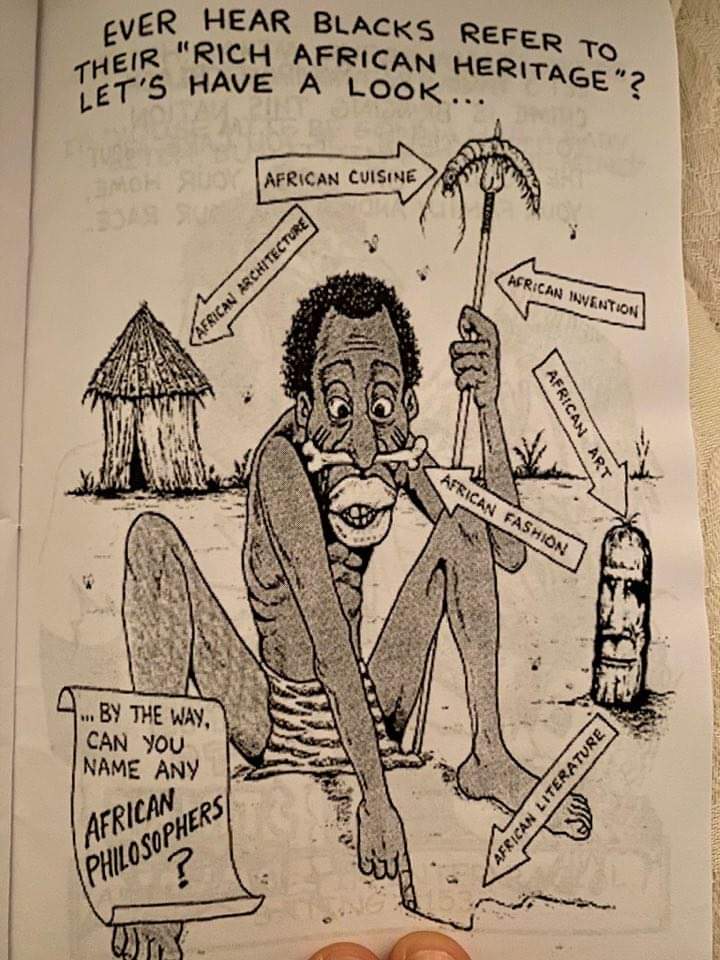 EVER HEAR BLACKS REFER TO
THEIR "RICH AFRICAN HERITAGE"?
LET'S HAVE A LOOK...
AFRICAN CUISINE
AFRICAN ARCHITECTURE
AFRICAN INVENTION
AFRICAN ART
AFRICAN FASHION
... BY THE WAY,
CAN YOU
NAME ANY
AFRICAN
PHILOSOPHERS
?
AFRICAN LITERATURE